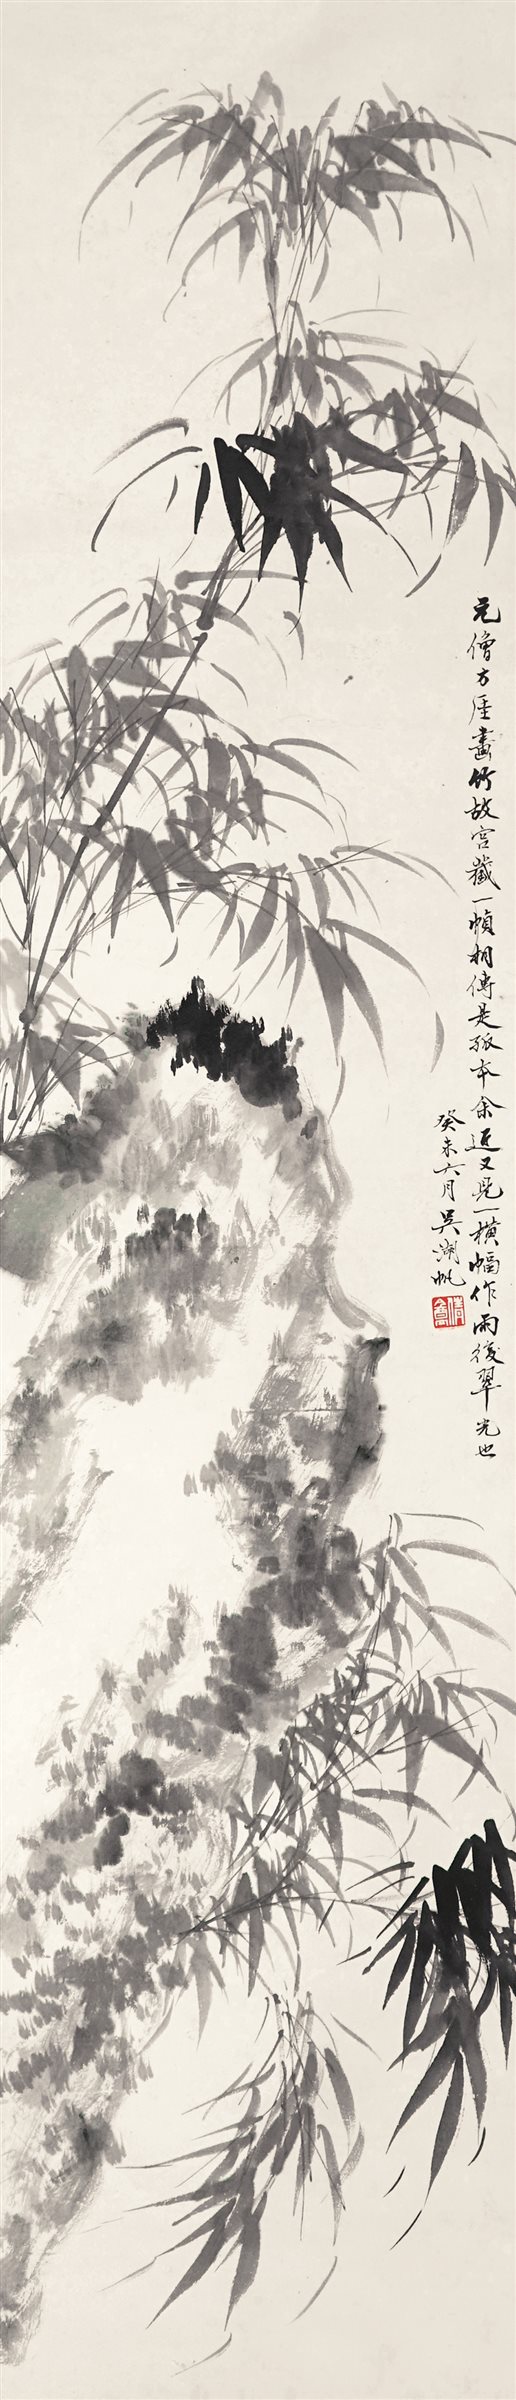 元僧方厓畫竹故宫藏一幀相傳是孤本余近又見一橫幅作雨後翠光也
癸未六月吳湖帆
倩盦